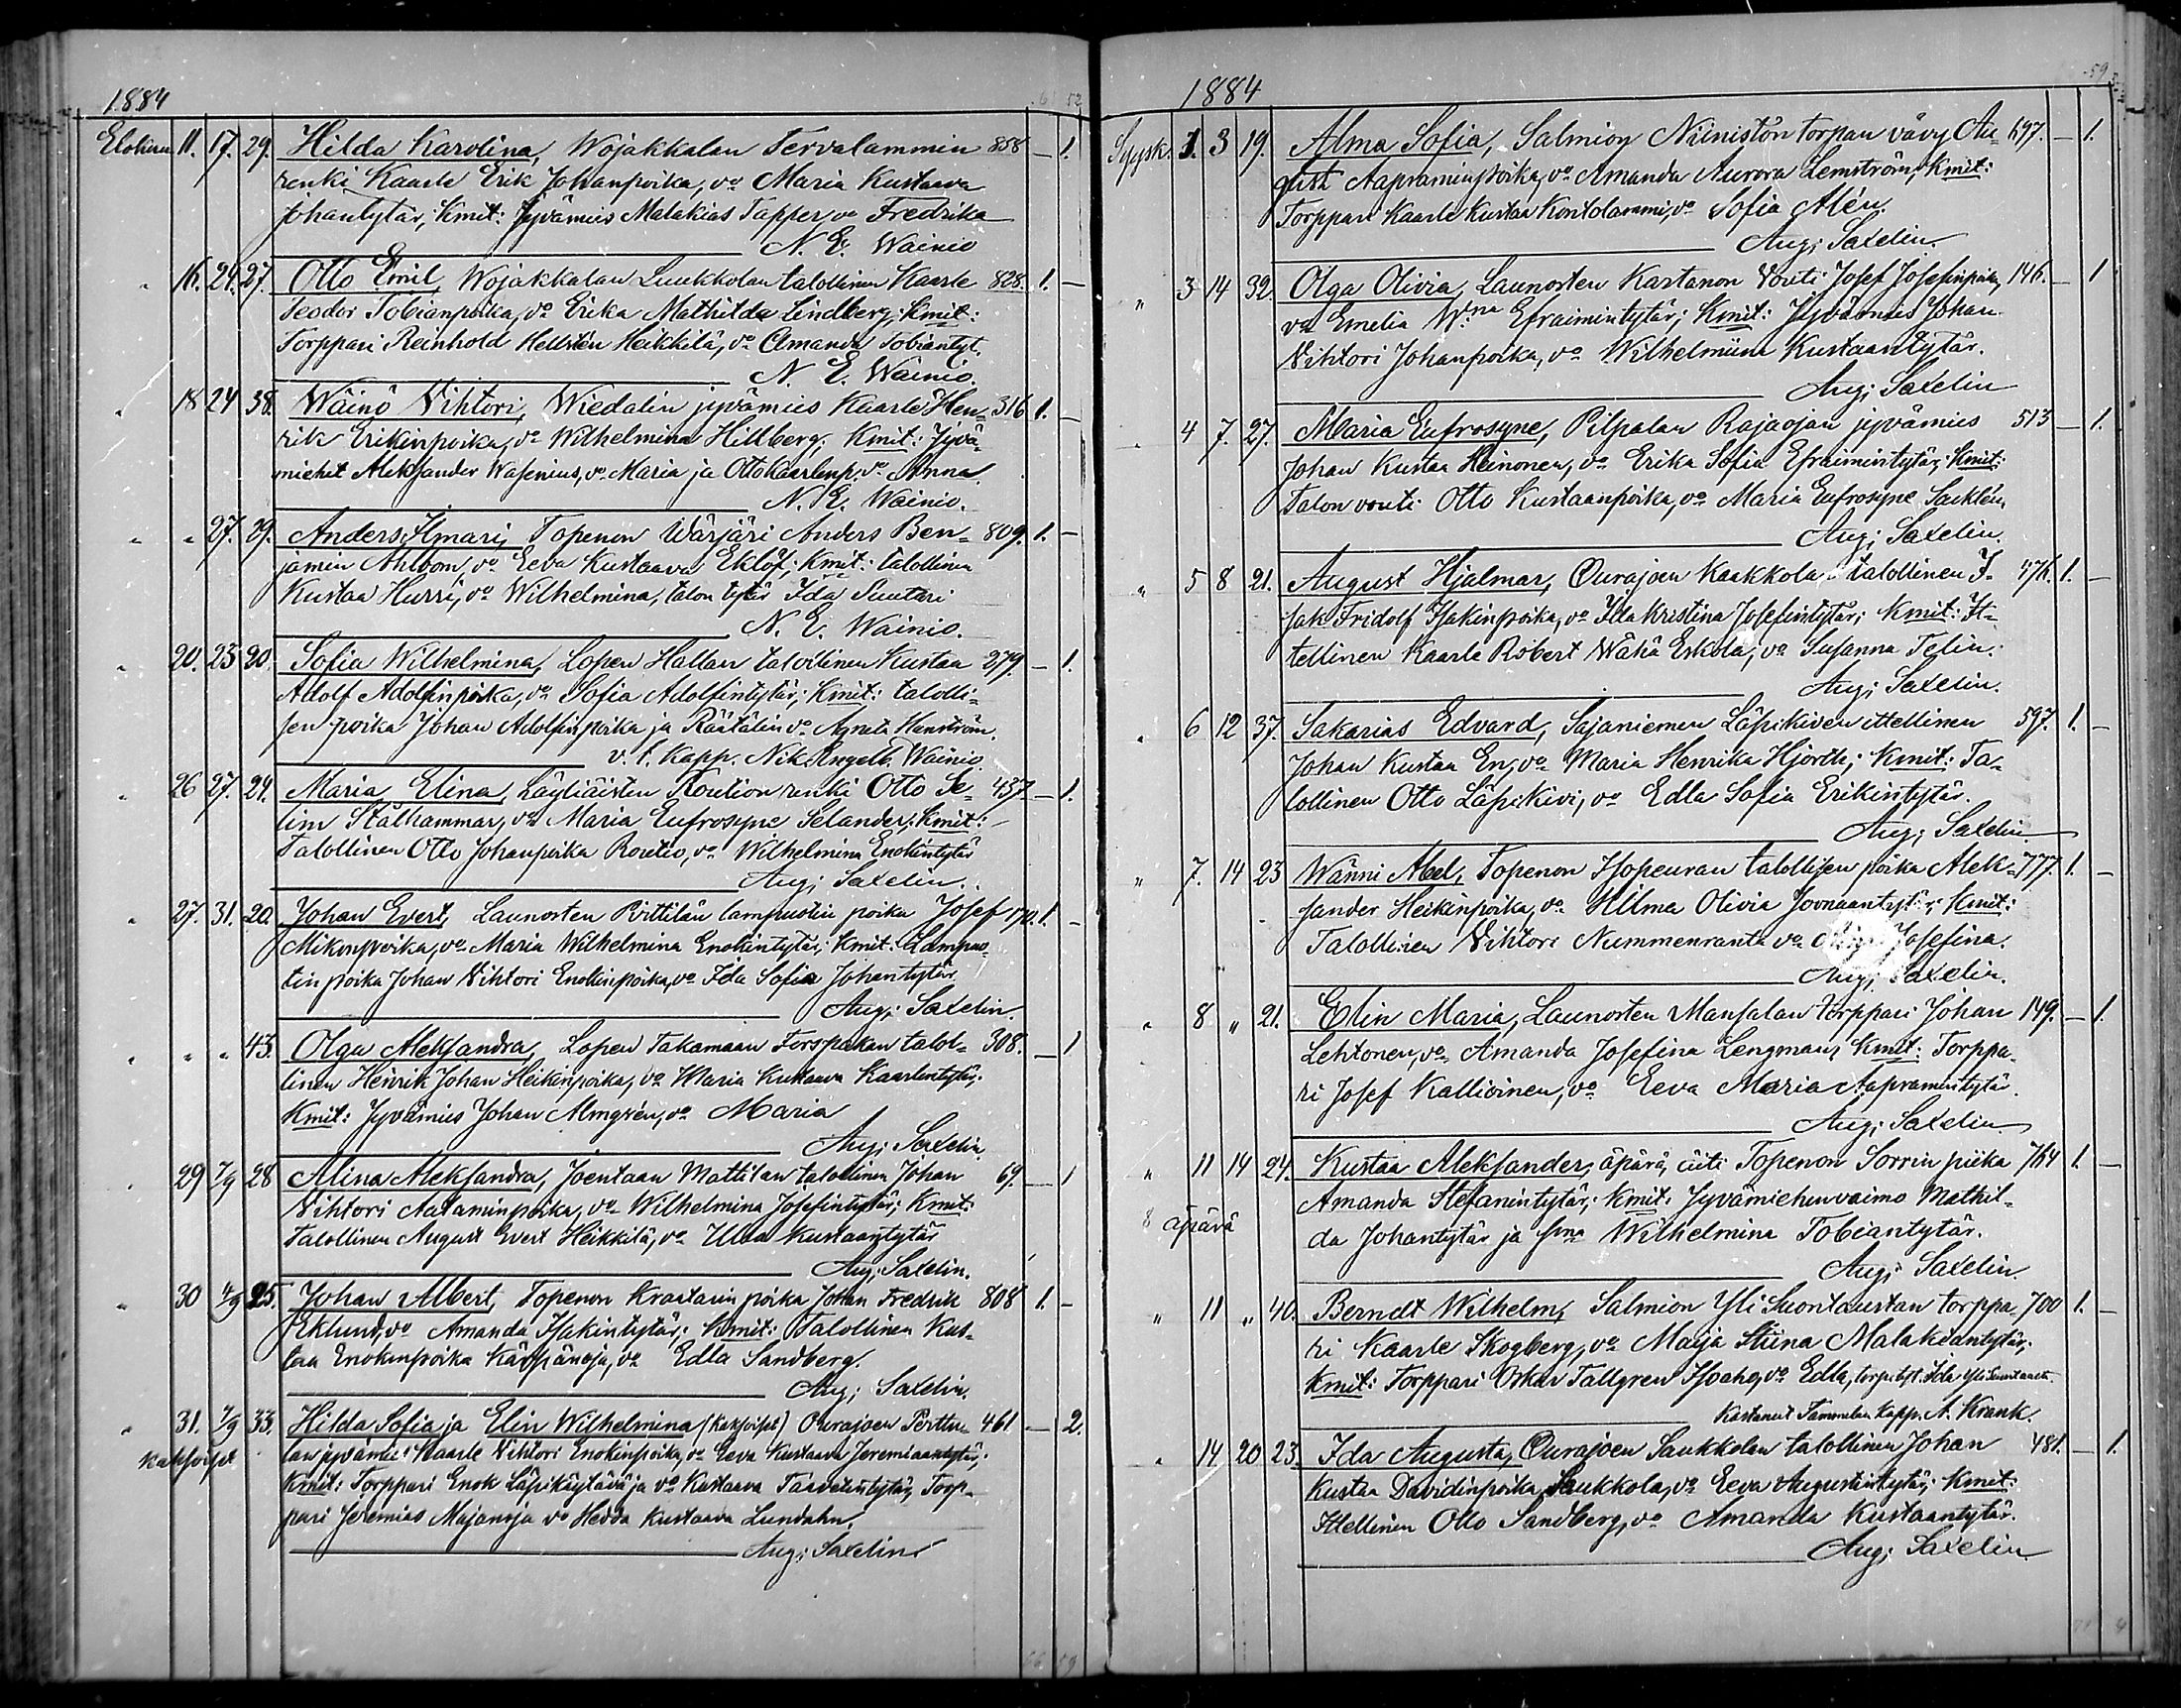 1884
Elokuu 11. 17. 29. Hilda Karolina, Wojakkalan Tervalammin 858 — 1.
renki Kaarle Erik Johanpoika, vo Maria Kustaava
Johantytär, Kmit: Jyvämies Malakias Tapper vo Fredrika
N. E. Wainio
" 16. 24. 27. Otto Emil, Wojakkalan Luukkolan talollinen Kaarle 828. 1. —
Teodor Tobianpoika, vo Erika Mathilda Lindberg; Kmit:
Torppari Reinhold Hellstén Heikkilä, vo Amanda Tobiantyt.
N. E. Wainio.
" 18 24 38. Wäinö Vihtori, Wiedalin jyvämies Kaarle Hen- 316 1. —
rik Erikinpoika, vo Wilhelmina Hillberg; Kmit: Jyvä-
miehet Aleksander Wasenius, vo Maria ja Otto Kaarlenp. vo Anna.
N. E. Wainio.
" " 27. 29. Anders Ilmari, Topenon Wärjäri Anders Ben- 809. 1. —
jamin Ahlbom, vo Eeva Kustaava Eklöf; Kmit: talollinen
Kustaa Hurri, vo Wilhelmina, talon tytär Ida Suutari
N. E. Wainio.
" 20. 23 20. Sofia Wilhelmina, Lopen Hallan talollinen Kustaa 279. — 1.
Adolf Adolfinpoika, vo Sofia Adolfintytär; Kmit: talolli-
sen poika Johan Adolfinpoika ja Räätälin vo Agneta Henström.
v. t. Kapp. Nik. Engelb. Wainio.
" 26 27. 24. Maria Elina, Läyliäisten Roution renki Otto Se- 437 — 1.
lim Stålhammar, vo Maria Eufrosyne Selander; Kmit:
Talollinen Otto Johanpoika Routio, vo Wilhelmina Enokintytär
Aug; Saxelin.
" 27. 31. 20. Johan Evert, Launosten Pirttilän lampuotin poika Josef 170. 1. —
Mikonpoika, vo Maria Wilhelmina Enokintytär; Kmit: Lampuo-
tin poika Johan Vihtori Enokinpoika, vo Ida Sofia Johantytär.
Aug; Saxelin.
" " " 43. Olga Aleksandra, Lopen Takamaan Forspakan talol- 308. — 1
linen Henrik Johan Heikinpoika, vo Maria Kustaava Kaarlentytär;
Kmit: Jyvämies Johan Almgrén, vo Maria
Aug; Saxelin
" 29 7/9 28 Alina Aleksandra, Joentaan Mattilan talollinen Johan 69. — 1
Vihtori Aataminpoika, vo Wilhelmina Josefintytär; Kmit:
Talollinen August Evert Heikkilä, vo Ulla Kustaantytär
Aug; Saxelin.
" 30 4/9 25. Johan Albert, Topenon Kraatarin poika Johan Fredrik 808 1. —
Eklund, vo Amanda Isakintytär; Kmit: Talollinen Kus-
taa Enokinpoika Kärpänoja, vo Edla Sandberg.
Aug; Saxelin.
" 31. 7/9 33. Hilda Sofia ja Elin Wilhelmina (Kaksoiset) Ourajoen Perttu- 461 — 2.
kaksoiset lan jyvämies Kaarle Vihtori Enokinpoika, vo Eeva Kustaava Jeremiaantytär;
Kmit: Torppari Enok Läpikäytävä ja vo Kustaava Taavetintytär, Torp-
pari Jeremias Majanoja vo Hedda Kustaava Lundahn.
Aug; Saxelin
1884
Syysk. 1. 3 19. Alma Sofia, Salmion Niinistön torpan vävy Au- 697. — 1.
gust Aapraminpoika, vo Amanda Aurora Lemström; Kmit:
Torppari Kaarle Kustaa Kontolammi, vo Sofia Alén.
Aug; Saxelin.
" 3 14 32. Olga Olivia, Launosten Kartanon Vouti Josef Josefinpoika, 146. — 1
vo Emelia W:na Efraimintytär; Kmit: Jyvämies Johan
Vihtori Johanpoika, vo Wilhelmiina Kustaantytär.
Aug; Saxelin
" 4 7. 27. Maria Eufrosyne, Pilpalan Rajaojan jyvämies 513 — 1.
Johan Kustaa Heinonen, vo Erika Sofia Efraimintytär; Kmit:
Talon vouti Otto Kustaanpoika, vo Maria Eufrosyne Saxlén,
Aug; Saxelin.
" 5 8 21. August Hjalmar, Ourajoen Kaakkola talollinen I- 476. 1. —
sak Fridolf Isakinpoika, vo Ida Kristina Josefintytär; Kmit: It-
tellinen Kaarle Robert Wähä Eskola, vo Susanna Telin.
Aug; Saxelin.
" 6 12 37. Sakarias Edvard, Sajaniemen Läpikiven ittellinen 597. 1. —
Johan Kustaa En, vo Maria Henrika Hjorth; Kmit: Ta-
lollinen Otto Läpikivi, vo Edla Sofia Erikintytär.
Aug; Saxelin
" 7. 14 23 Wänni Abel, Topenon Isopeuran talollisen poika Alek- 777. 1. —
sander Heikinpoika, vo Hilma Olivia Kmit:
Talollinen Vihtori Nummenranta vo Josefina.
Aug; Saxelin.
" 8 " 21. Elin Maria, Launosten Mansalan torppari Johan 149. — 1.
Lehtonen, vo Amanda Josefina Lengman; Kmit: Torppa-
ri Josef Kallioinen, vo Eeva Maria Aapramintytär.
Aug; Saxelin
" 11 14 24. Kustaa Aleksander, äpärä, äiti Topenon Sorrin piika 764 1. —
Amanda Stefanintytär; Kmit: Jyvämiehen vaimo Mathil-
8 äpärä
da Johantytär ja Wilhelmina Tobiantytär.
Aug; Saxelin
" 11 " 40. Berndt Wilhelm, Salmion Yli Suontaustan torppa- 700 1. —
ri Kaarle Skogberg, vo Maija Stiina Malakiantytär;
Kmit: Torppari Oskar Tallgren Isoaho, vo Edla, torp. tyt. Ida Yli Suontaust.
Kastanut Tammelan Kapp. A. Krank.
" 14 20 23. Ida Augusta, Ourajoen Saukkolan talollinen Johan 481. — 1.
Kustaa Davidinpoika Saukkola, vo Eeva Augustintytär; Kmit:
Ittellinen Otto Sandberg, vo Amanda Kustaantytär.
Aug; Saxelin